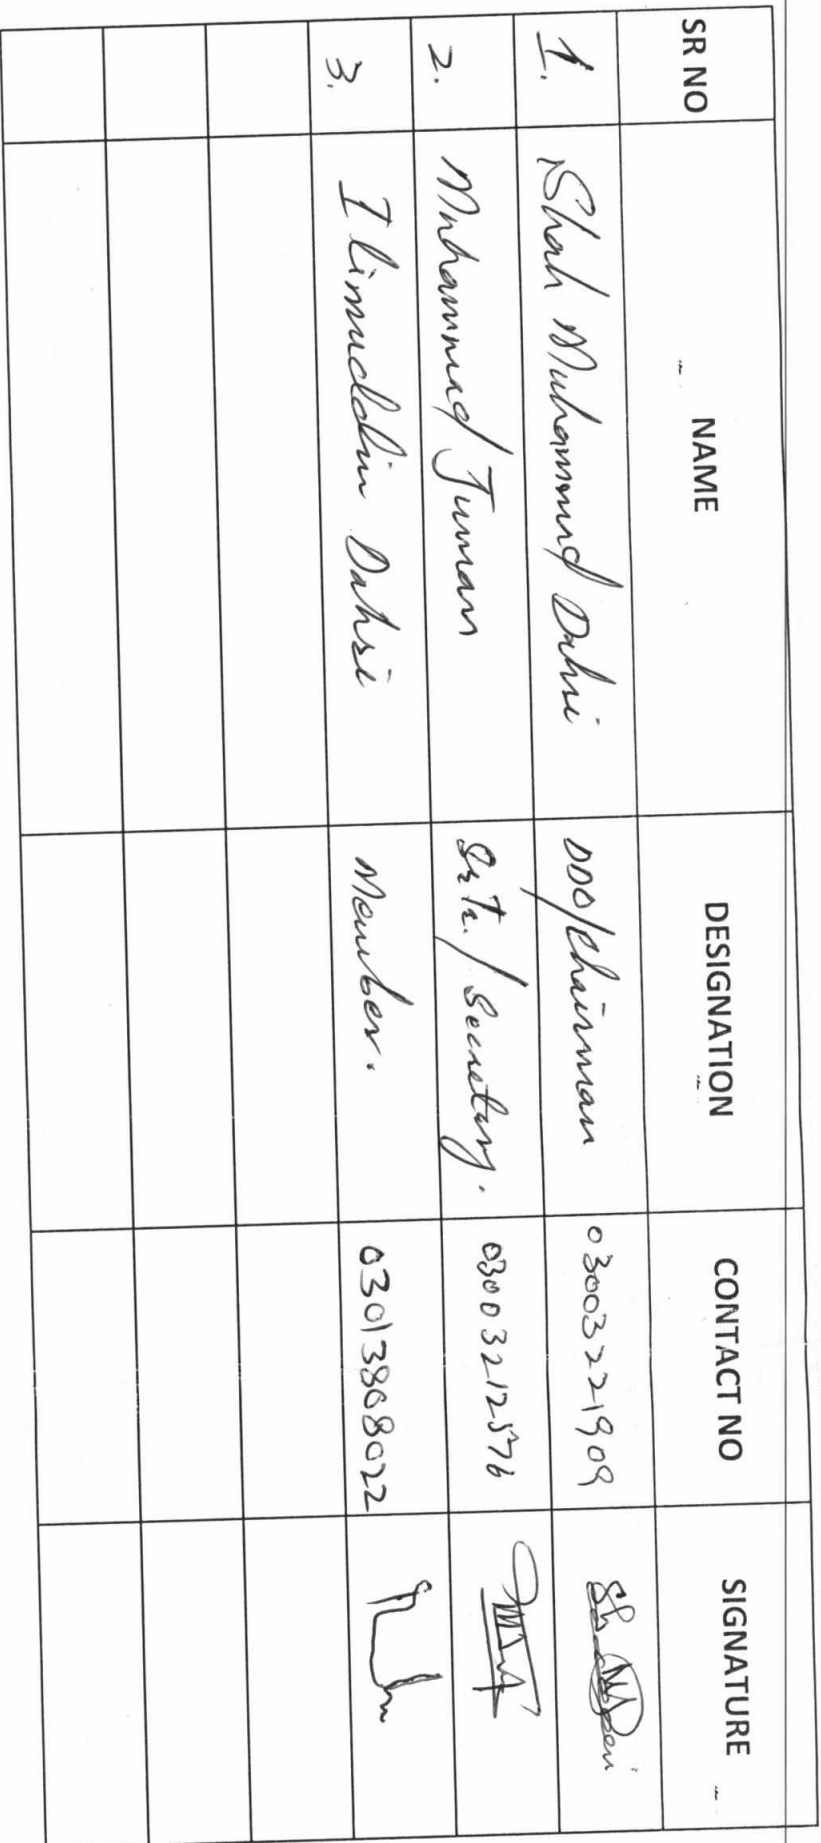 SR NO NAME DESIGNATION CONTACT NO SIGNATURE
1. Shah Muhammad Dahri DDO/Chairman 03003221909
2. Muhammad Juman Sr. Tr. / Secretary. 03003212576
3. Ilimuddin Dahri Member. 03013808022